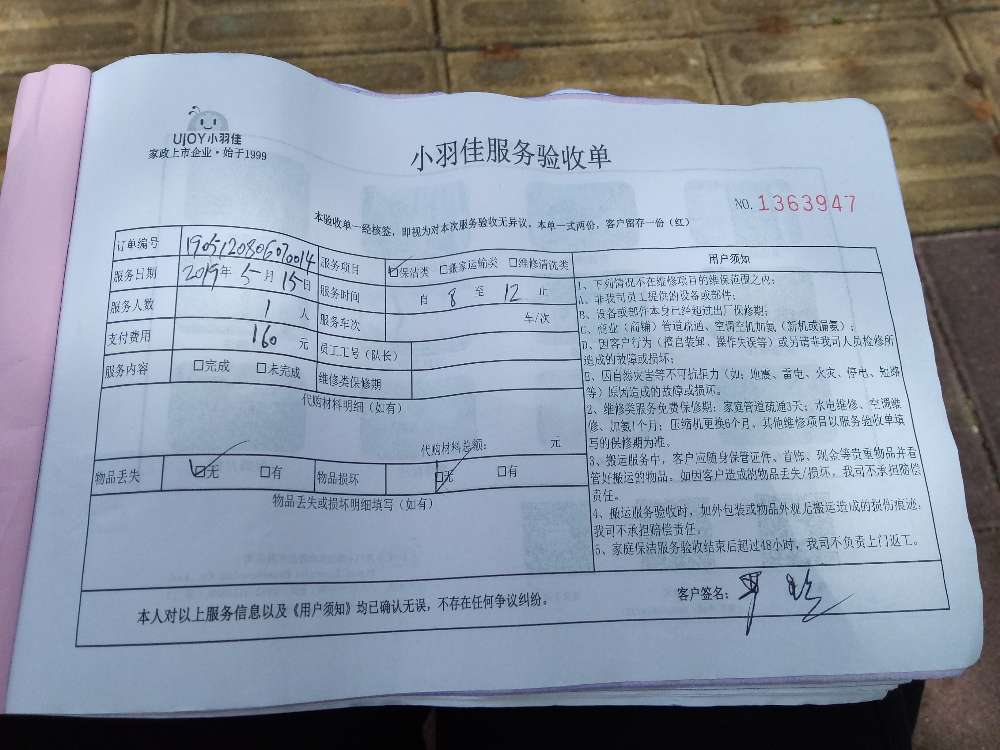 UJOY小羽佳
家政上市企业·始于1999
小羽佳服务验收单
NO. 1363947
本验收单一经核签，即视为对本次服务验收无异议，本单一式两份，客户留存一份（红）
订单编号 1905120806070014 服务项目 ☑保洁类 □搬家运输类 □维修清洗类
服务日期 2019年 5 月 15日 服务时间 自 8 至 12 止
服务人数 1 人 服务车次 车/次
支付费用 160 元 员工工号（队长）
服务内容 □完成 □未完成 维修类保修期
代购材料明细（如有）
代购材料总额： 元
物品丢失 ☑无 □有 物品损坏 ☑无 □有
物品丢失或损坏明细填写（如有）
用户须知
1、下列情况不在维修项目的维保范围之内：
A、非我司员工提供的设备或部件；
B、设备或部件本身已经超过出厂保修期；
C、营业（商铺）管道疏通、空调空机加氟（新机或漏氟）；
D、因客户行为（擅自装卸、操作失误等）或另请非我司人员检修所
造成的故障或损坏；
E、因自然灾害等不可抗拒力（如：地震、雷电、火灾、停电、短路
等）原因造成的故障或损坏。
2、维修类服务免费保修期：家庭管道疏通3天；水电维修、空调维
修、加氟1个月；压缩机更换6个月，其他维修项目以服务验收单填
写的保修期为准。
3、搬运服务中，客户应随身保管证件、首饰、现金等贵重物品并看
管好搬运的物品。如因客户造成的物品丢失/损坏，我司不承担赔偿
责任。
4、搬运服务验收时，如外包装或物品外观无搬运造成的损伤痕迹，
我司不承担赔偿责任。
5、家庭保洁服务验收结束后超过48小时，我司不负责上门返工。
本人对以上服务信息以及《用户须知》均已确认无误，不存在任何争议纠纷。
客户签名：